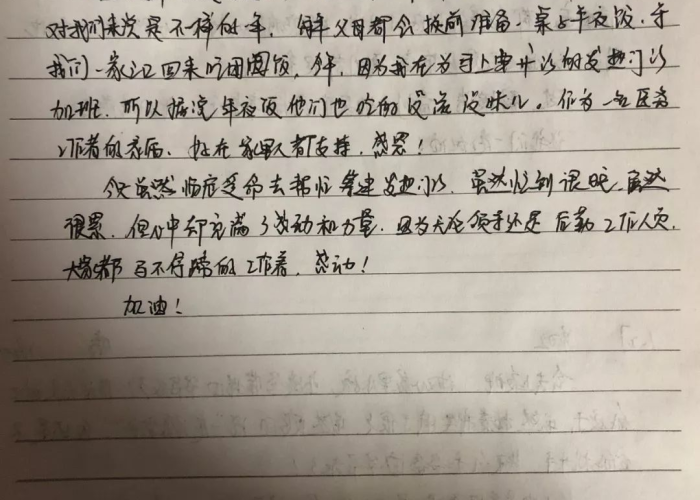 对我们来说是不一样的年。每年父母都会提前准备一桌年夜饭,等
我们一家三口回来吃团圆饭,今年,因为我在为马上要开诊的发热门诊
加班,所以据说年夜饭他们也吃的没滋没味儿。作为一名医务
工作者的家属,好在家里人都支持,感恩!
今天虽然临危受命去帮忙筹建发热门诊,虽然忙到很晚,虽然
很累,但心中却充满了感动和力量,因为无论领导还是后勤工作人员,
大家都马不停蹄的工作着,感动!
加油!